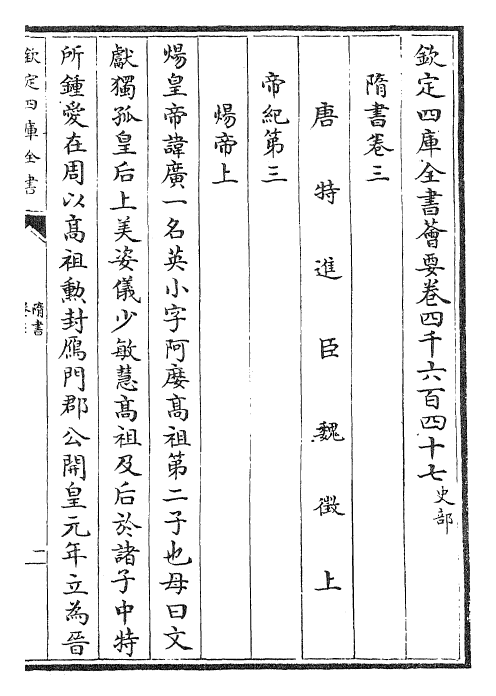 欽定四庫全書薈要卷四千六百四十七史部
隋書卷三
唐特進臣魏徵上
帝紀第三
煬帝上
煬皇帝諱廣一名英小字阿㜷髙祖第二子也母曰文
獻獨孤皇后上美姿儀少敏慧髙祖及后於諸子中特
所鍾愛在周以髙祖勲封鴈門郡公開皇元年立為晉
欽定四庫全書
隋書
二